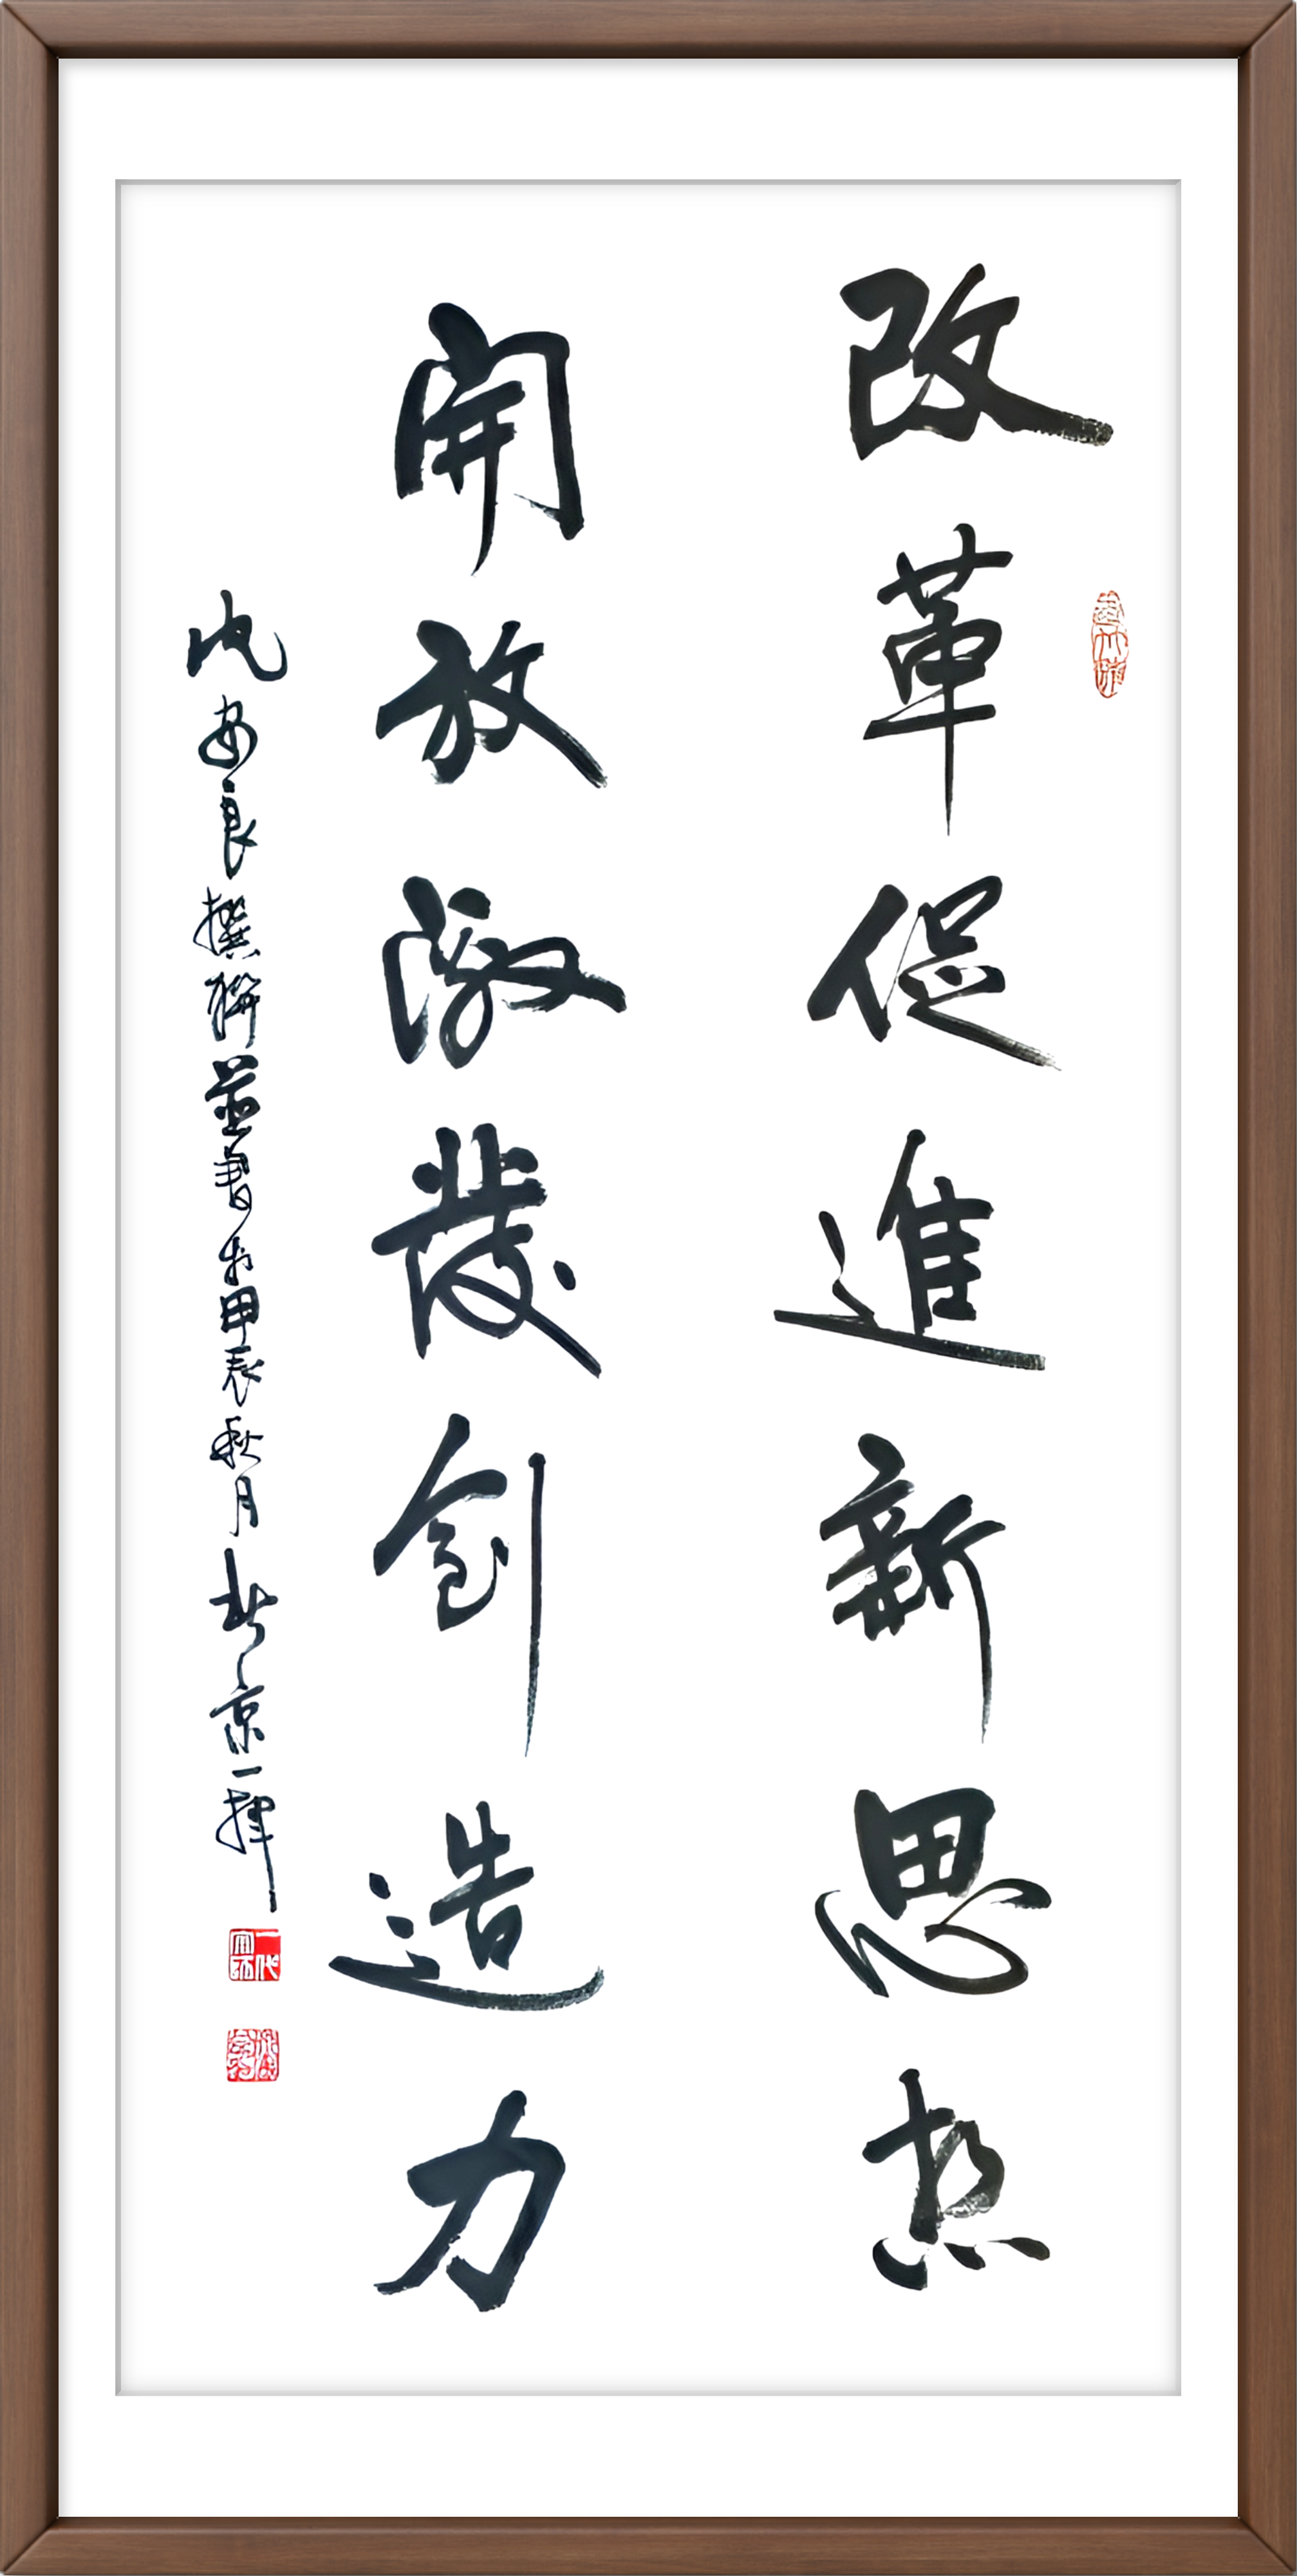 改革促進新思想
開放激發创造力
沈安良撰聯並書於甲辰秋月北京一揮